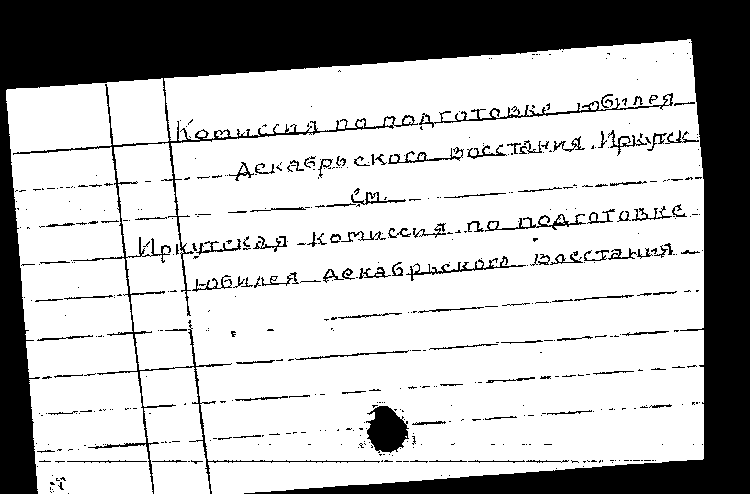 Комиссия по подготовке юбилея
декабрьского восстания. Иркутск
см.
Иркутская комиссия по подготовке
юбилея декабрьского восстания.